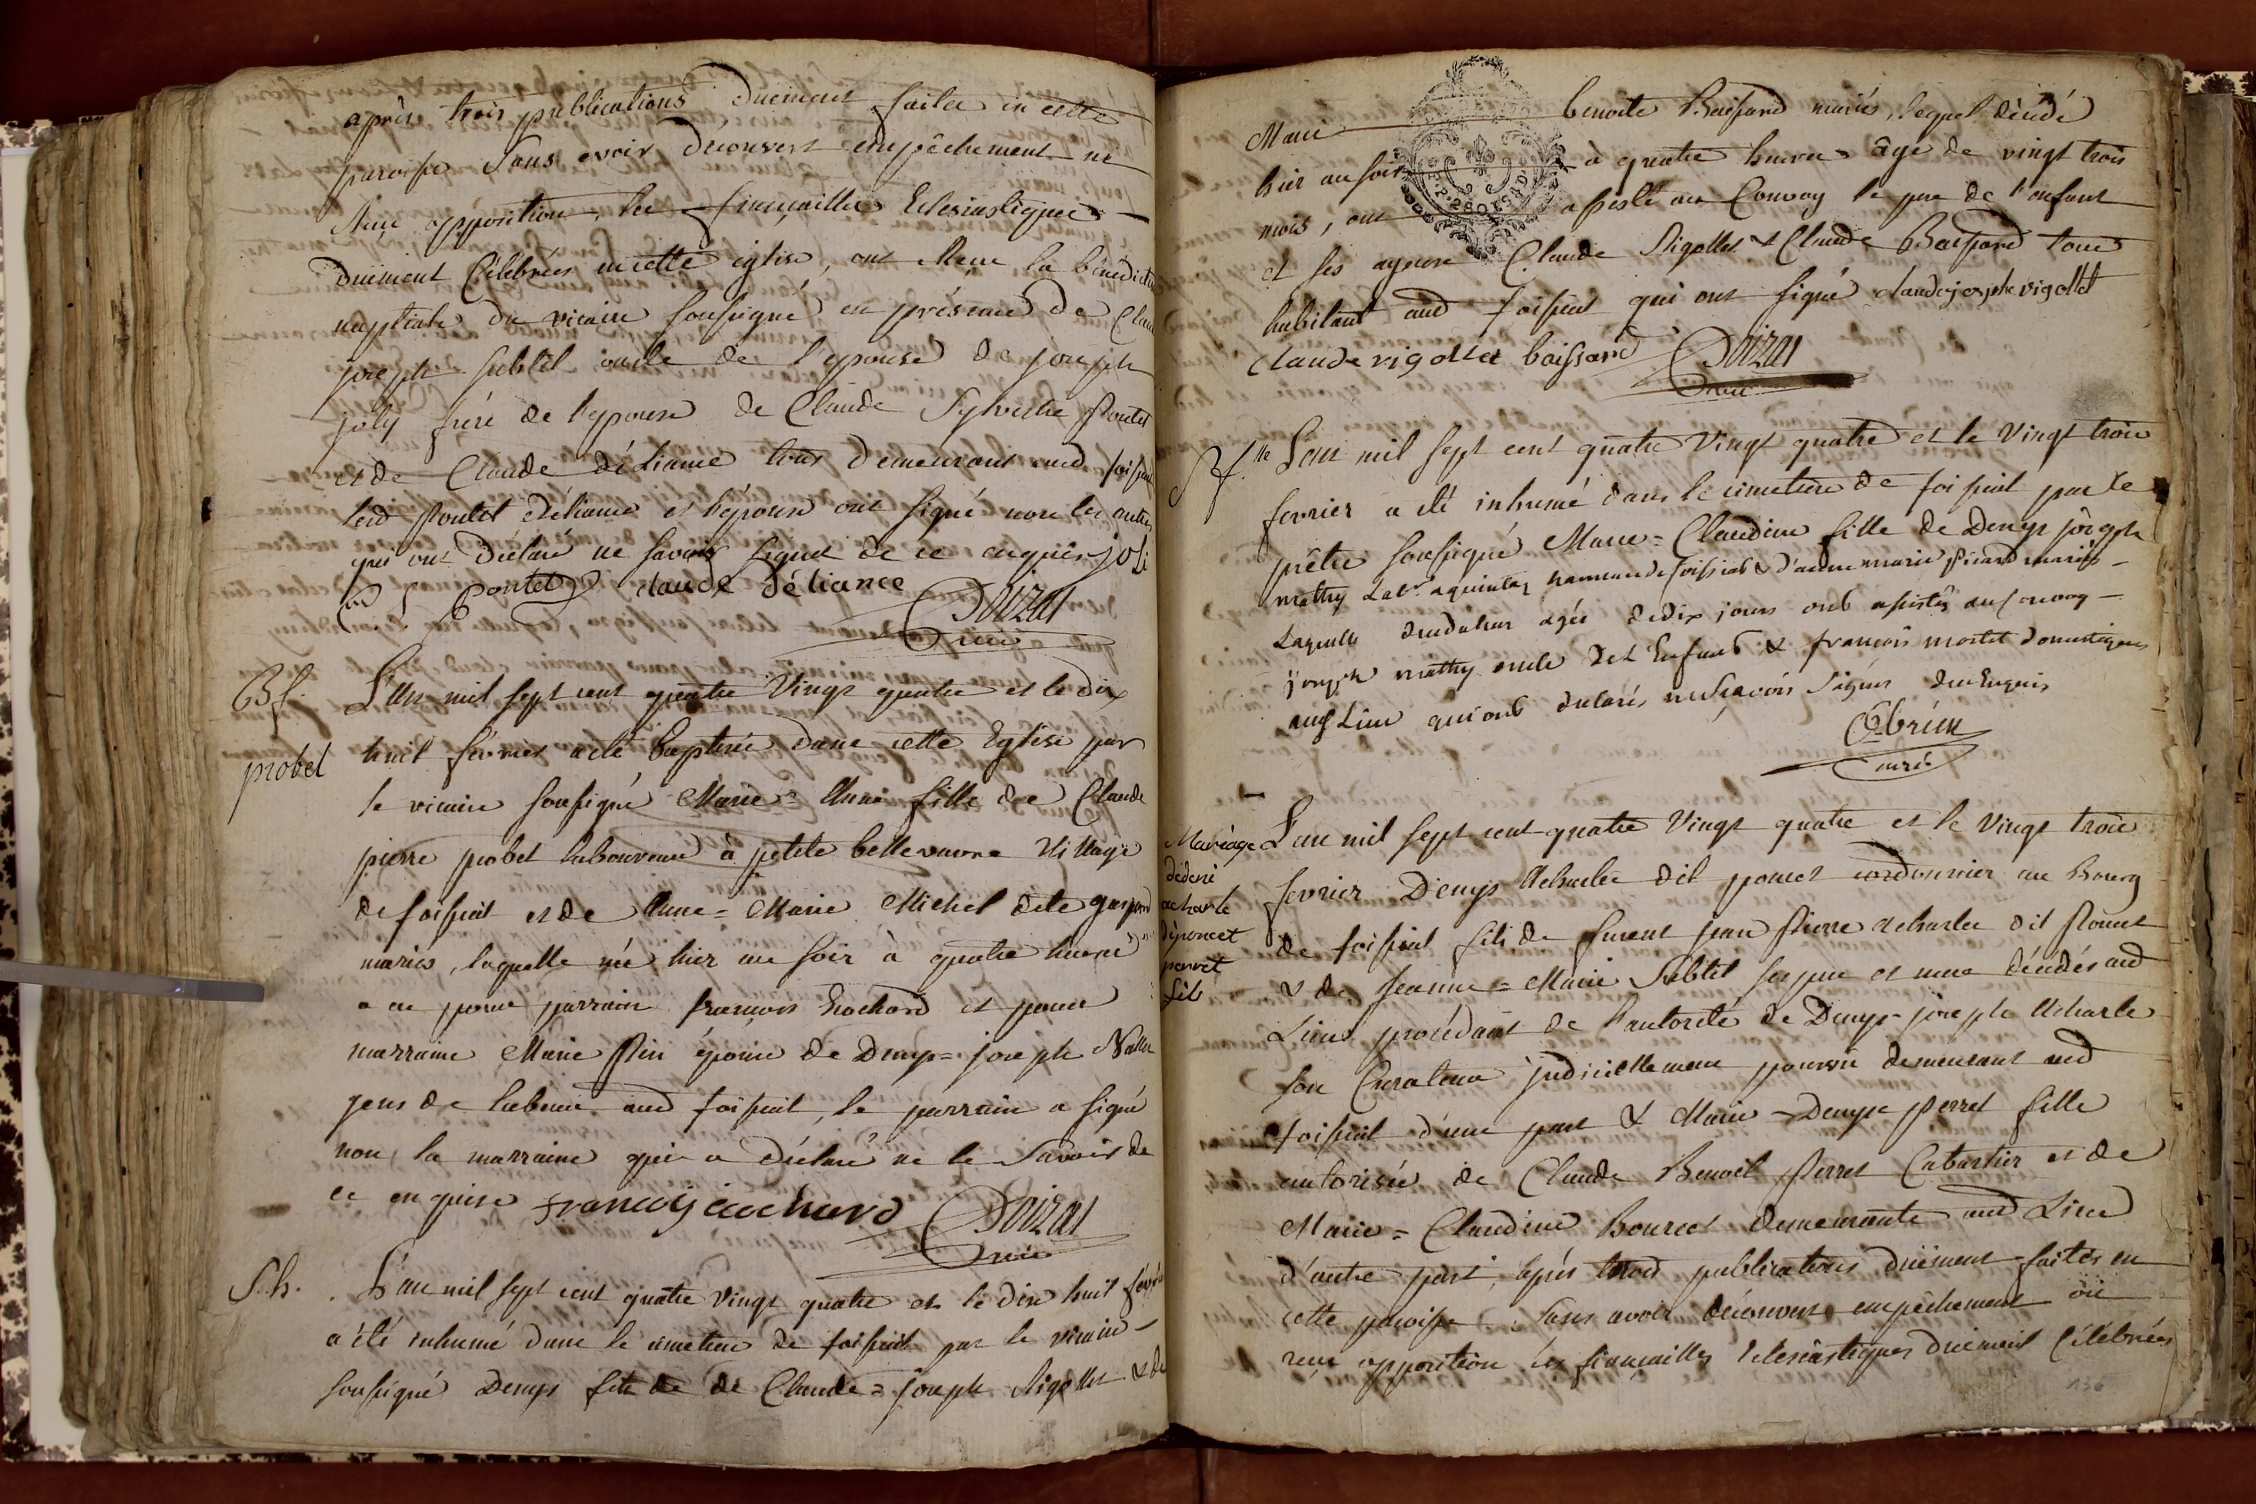 après trois publications duement faites en cette
paroisse sans avoir découvert empêchement ne
reçu opposition, les fiançailles Eclesiastiques
duement Célébrées en cette église, ont Reçu la bénédiction
nuptiale du vicaire soussigné en présence de Claude
joseph subtil oncle de l'epouse de joseph
joly frère de l'epouse de Claude Sylvestre Pontet
et de Claude déliance tous demeurant aud foissiat
lesd Pontet déliance et l'épouse ont signé non les autres
qui ont déclaré ne savoir signer de ce enquis joli
Pontet claude déliance Doizat
vicaire
Bf. L'an mil sept cent quatre vingt quatre et le dix
probel huit février a été baptisée dans cette Eglise par
le vicaire soussigné Marie = Anne fille de Claude
pierre probel laboureur à petite bellevavre village
de foissiat et de Anne = Marie Michel dite gaspard
mariés, laquelle née hier au soir à quatre heures
a eu pour parrain françois Enochard et pour
marraine Marie Pin épouse de Denys = joseph
gens de labeur aud foissiat, le parrain a signé
non la marraine qui a déclaré ne le savoir de
ce enquise françois Doizat
vicaire
S.h. L'an mil sept cent quatre vingt quatre et le dix huit février
a été inhumé dans le cimetiere de foissiat par le vicaire
soussigné Denys fils de de Claude = joseph Vigollet & de
Marie benoite Baissard mariés, lequel décédé
hier au soir à quatre heures âgé de vingt trois
mois, ont assisté au Convoy le père de l'enfant
et ses ayeux Claude Vigollet & Claude Baissard tous
habitant aud foissiat qui ont signé claude joseph vigollet
claude vigollet baissard Doizat
vicaire
Sf. L'an mil sept cent quatre vingt quatre et le vingt trois
fevrier a été inhumé dans le cimetiere de foissiat par le
prêtre soussigné Marie = Claudine fille de Denys joseph
mathy Lab.r a hameau de foissiat & d'anne marie Picard mariés
Laquelle decedée hier agée de dix jours ont assistés au convoy
joseph mathy oncle de L'Enfant & françois mortet domestiques
aud Lieu qui ont declarés ne sçavoir signer de ce Enquis
Ebrard
curé
Mariage L'an mil sept cent quatre vingt quatre et le vingt trois
de deni fevrier Denys Acharles dit poncet cordonnier au Bourg
acharle de foissiat fils de furent jean Pierre acharles dit Poncet
diponcet & de jeanne = Marie Subtil ses père et mere décédés aud
perret Lieu procédant de l'autorité de Denys joseph Acharle
fils son Curateur judiciellement pourvu demeurant aud
foissiat d'une part & Marie = Denyse perret fille
autorisée de Claude Benoit Perret Cabartier et de
Marie = Claudine Bourcet demeurante aud Lieu
d'autre part, après trois publications duement faites en
cette paroisse sans avoir découvert empêchement ni
reçu opposition les fiançailles Eclesiastiques duement Célébrées
136